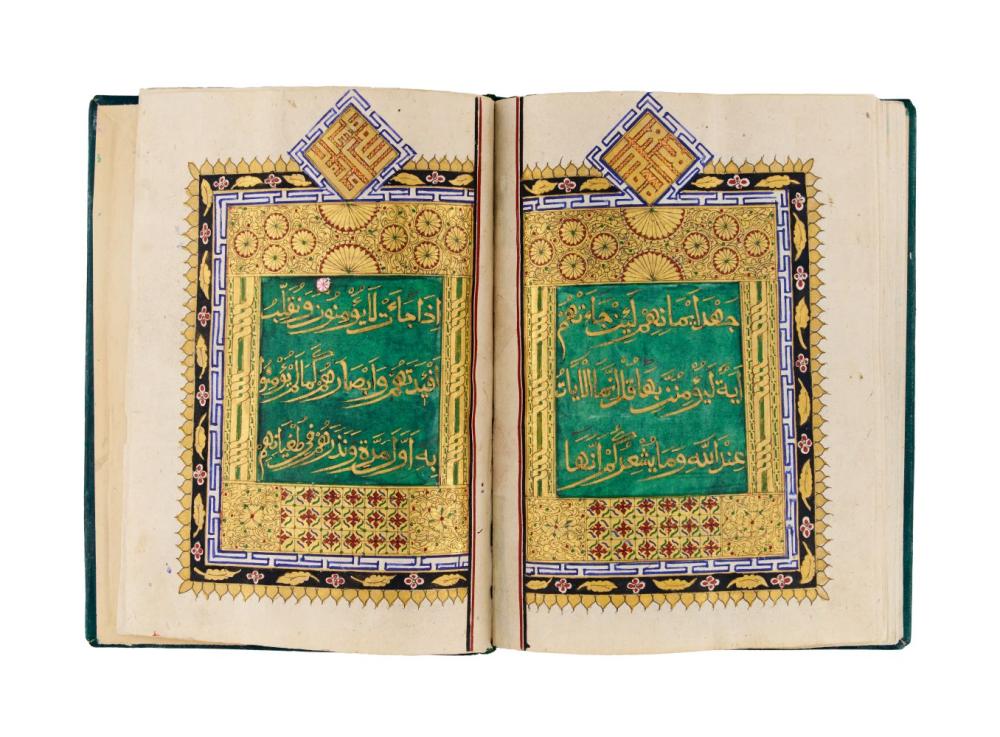 جهد ايمانهم لئن جاءتهم
اية ليؤمنن بها قل انما الايات
عند الله وما يشعركم انها
اذا جاءت لا يؤمنون ونقلب
افئدتهم وابصارهم كما لم يؤمنوا
به اول مرة ونذرهم في طغيانهم